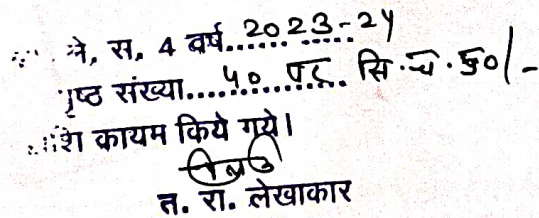 त्रे, स, 4 वर्ष....2023-24
पृष्ठ संख्या.....40 पर सि.च. 50/-
अंश कायम किये गये।
त. रा. लेखाकार